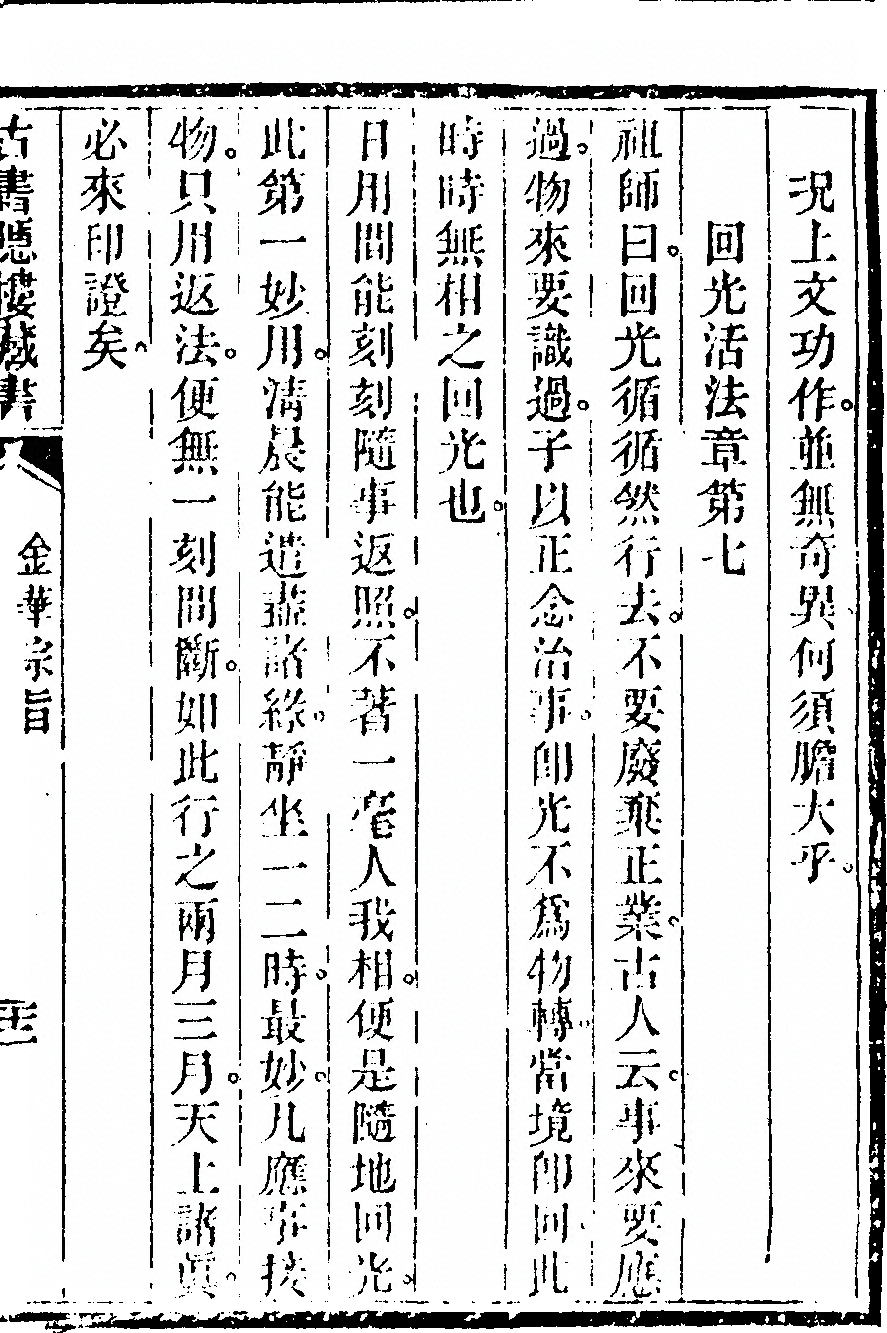 况上文功作。並無奇異何須膽大乎。
回光活法章第七
祖師曰。回光循循然行去。不要廢棄正業。古人云。事來要應
過。物來要識過。子以正念治事。卽光不爲物轉。當境卽回。此
時時無相之回光也。
日用間能刻刻隨事返照。不著一毫人我相。便是隨地回光。
此第一妙用。淸晨能遣盡諸緣。靜坐一二時。最妙。凡應事接
物。只用返法。便無一刻間斷。如此行之兩月三月。天上諸眞。
必來印證矣。
古書隱樓藏書
金華宗旨